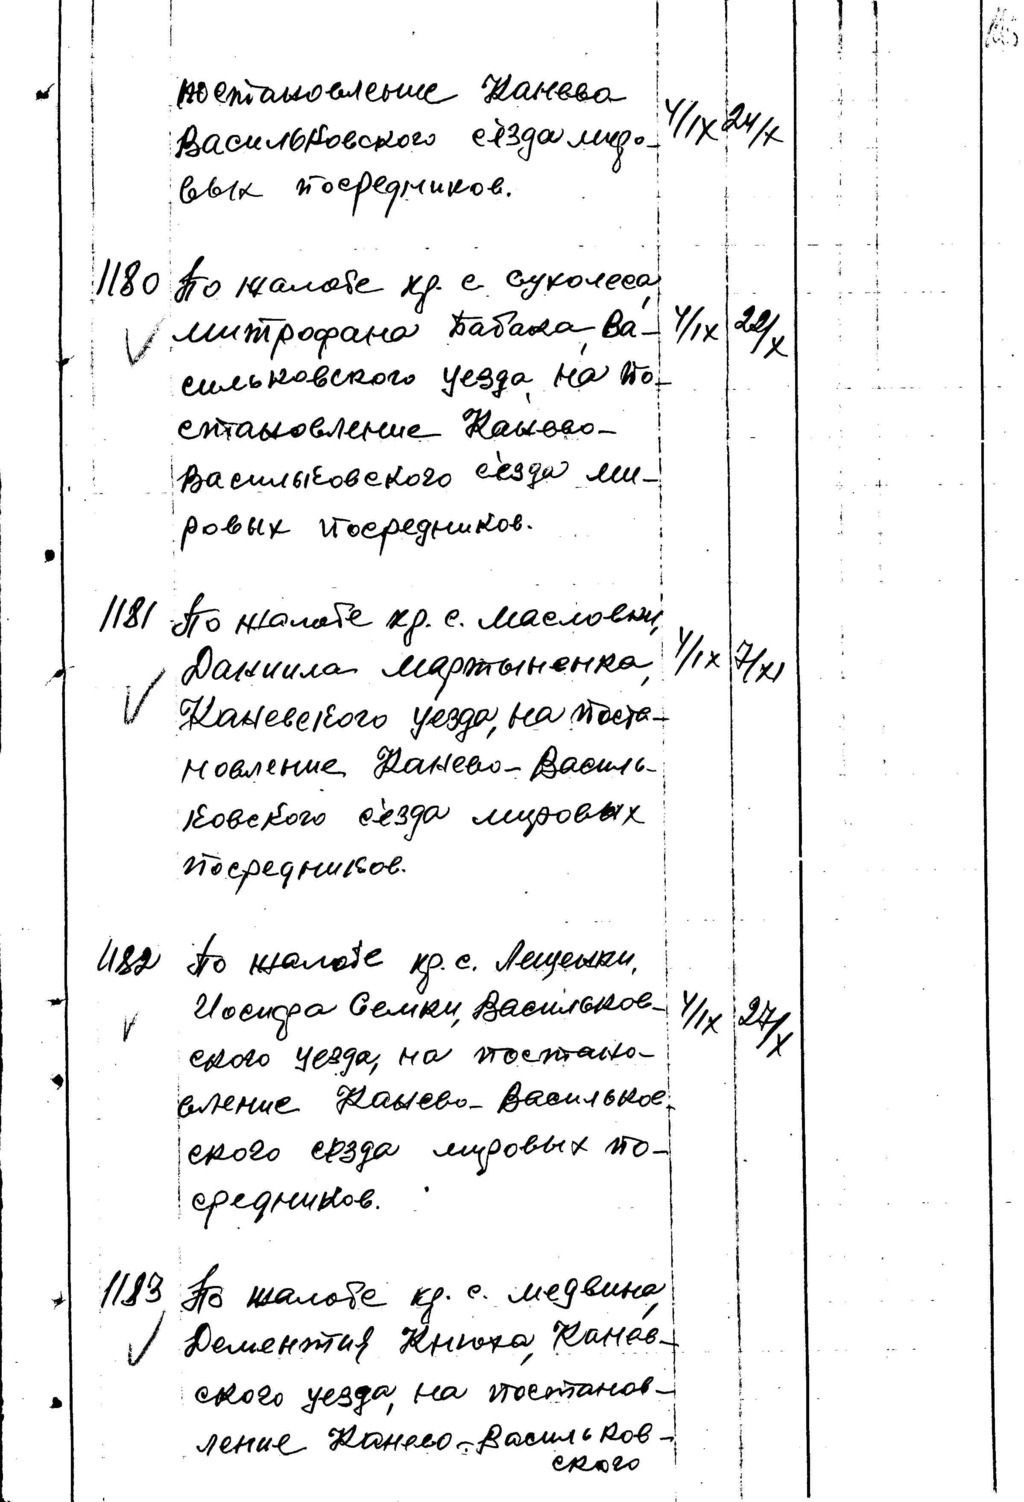 постановление Канева
Васильковского сѐзда миро-
вых посредников. 4/IX 24/X
1180 По жалобе кр. с. Сухолеса,
Митрофана Бабака, Ва- 4/IX 22/X
сильковского уезда, на по-
становление Канево-
Васильковского сѐзда ми-
ровых посредников.
1181 По жалобе кр. с. Масловки,
Даниила Мартыненка, 4/IX 7/XI
Каневского уезда, на поста-
новление Канево-Василь-
ковского сѐзда мировых
посредников.
1182 По жалобе кр. с. Лещенки,
Иосифа Семки, Васильков- 4/IX 27/X
ского уезда, на постано-
вление Канево-Васильков-
ского сезда мировых по-
средников.
1183 По жалобе кр. с. Медвина,
Дементия Кнюха, Канев-
ского уезда, на постанов-
ление Канево-Васильков-
ского